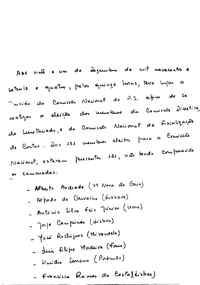 Aos vinte e um de Dezembro de mil novecentos e
setenta e quatro, pelas quinze horas, teve lugar a
reunião da Comissão Nacional do P.S. afim de se
realizar a eleição dos membros da Comissão Directiva,
do Secretariado, e da Comissão Nacional de Fiscalização
de Contas. Dos 151 membros eleitos para a Comissão
Nacional, estavam presentes 121, não tendo comparecido
os camaradas:
- Alberto Andrade (V. Nova de Gaia)
- Alfredo de Carvalho (Lisboa)
- António Silva
- Jorge Campinos (Lisboa)
- José Rodrigues (Mirandela)
- Luís Filipe Madeira (Faro)
- Emídio Serrano
- Francisco Ramos da Costa (Lisboa)